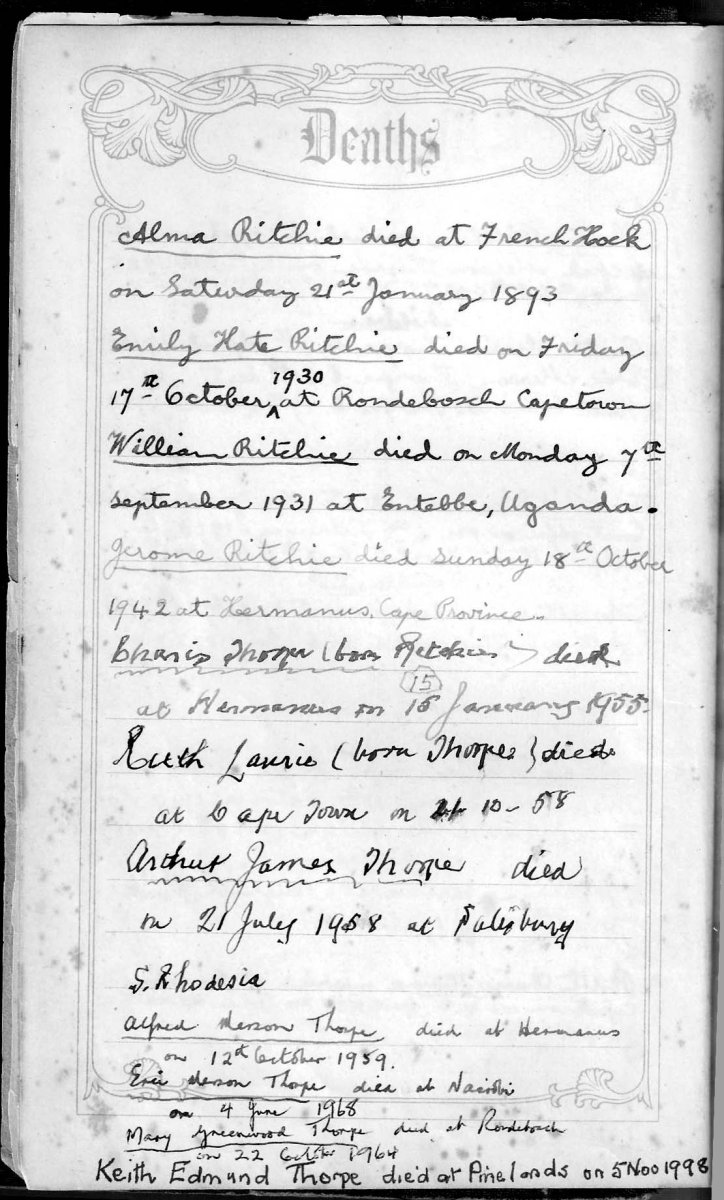 Deaths
Alma Ritchie died at French Hoek
on Saturday 21st January 1893
Emily Kate Ritchie died on Friday
1930
17th October, at Rondebosch Capetown
William Ritchie died on Monday 7th
September 1931 at Entebbe, Uganda.
Jerome Ritchie died Sunday 18th October
1942 at Hermanus, Cape Province.
Charis Thorpe (born Ritchie) died
15
at Hermanus on 15 January 1955.
Ruth Laurie (born Thorpe) died
at Cape Town on 10-58
Arthur James Thorpe died
on 21 July 1958 at Salisbury
S. Rhodesia
Alfred Merson Thorpe died at Hermanus
on 12th October 1959.
Eric Merson Thorpe died at Nairobi
on 4 June 1968
Mary Greenwood Thorpe died at Rondebosch
on 22 October 1964
Keith Edmund Thorpe died at Pinelands on 5 Nov 1998